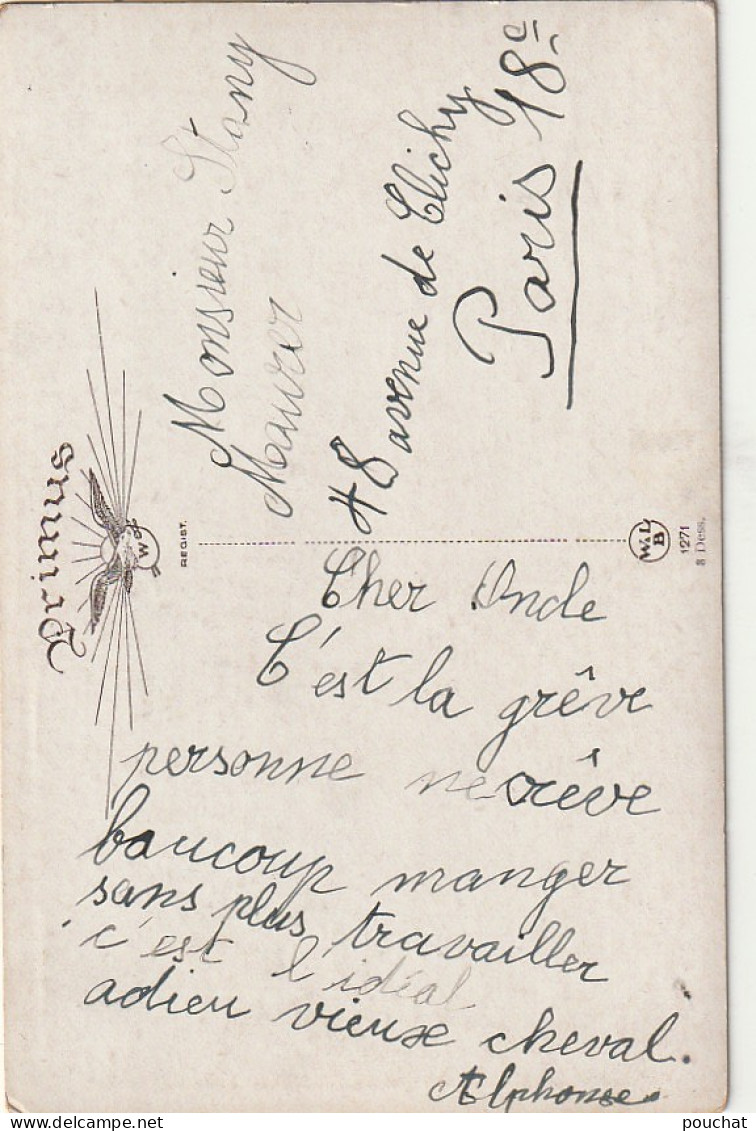 Cher Oncle
C'est la grêve
personne ne crêve
baucoup manger
sans plus travailler
c'est l'idéal
adieu vieux cheval.
Alphonse
Monsieur Stany
Maurer
48 avenue de Clichy
Paris 18e
Primus
W
REGIST.
W.L
B
1271
8 Dess.
delcampe.net
pouchat